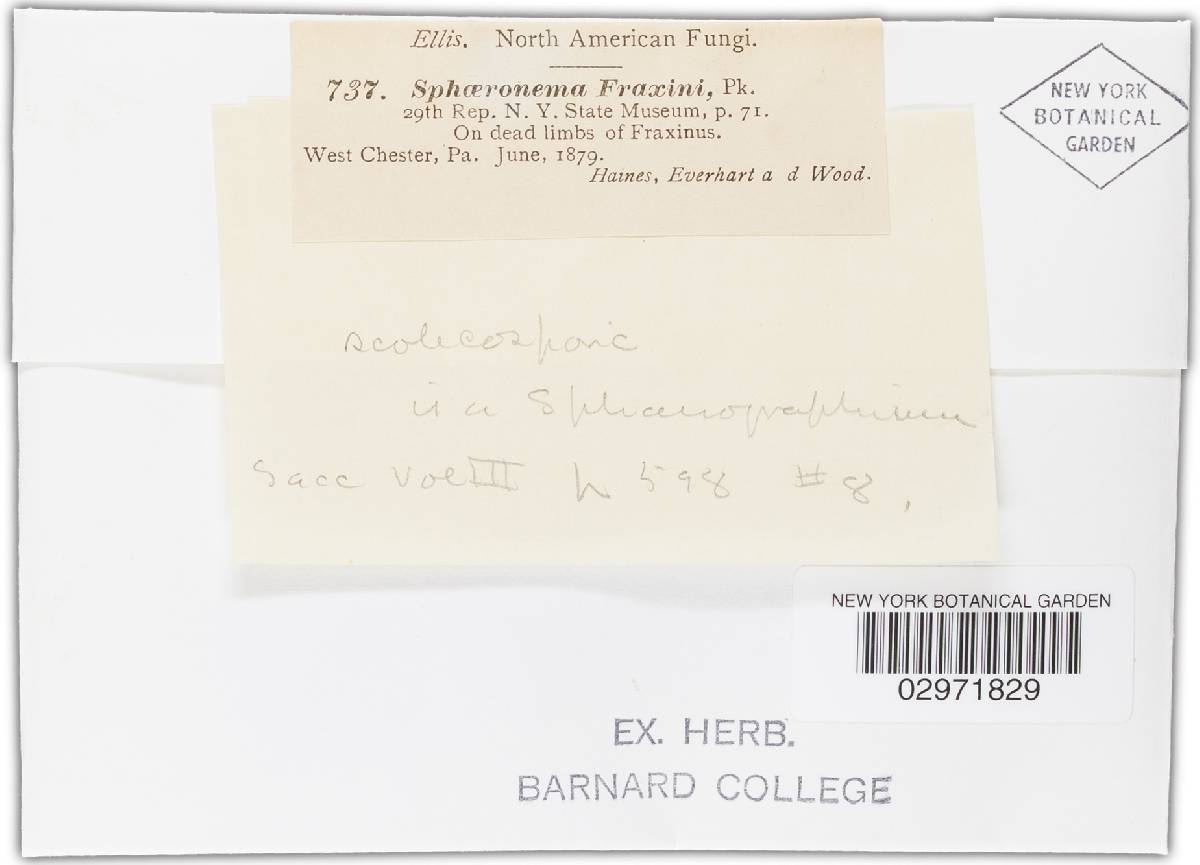 Ellis. North American Fungi.
737. Sphæronema Fraxini, Pk.
29th Rep. N. Y. State Museum, p. 71.
On dead limbs of Fraxinus.
West Chester, Pa. June, 1879.
Haines, Everhart a d Wood.
NEW YORK
BOTANICAL
GARDEN
scolecosporic
is a Sphaerographium
Sacc Vol III p 598 #8,
NEW YORK BOTANICAL GARDEN
02971829
EX. HERB.
BARNARD COLLEGE